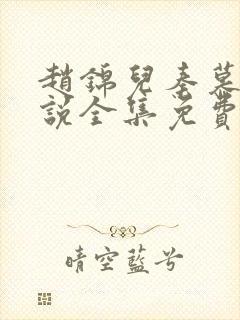 趙錦兒秦慕
說全集免費
晴空藍兮